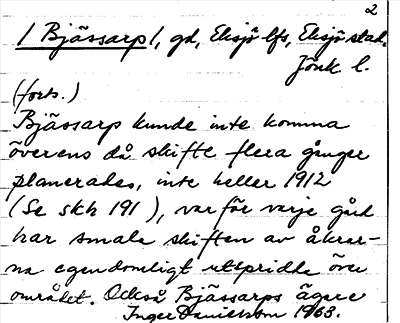 2
/ Bjässarp /, gd, Eksjö lfs, Eksjö stad,
Jönk l.
(forts.)
Bjässarp kunde inte komma
överens då skifte flera gånger
planerades, inte heller 1912
(Se skh 191 ), varför varje gård
har smala skiften av åkrar-
na egendomligt utspridda över
området. Också Bjässarps ägare
Inger Danielsson 1968.